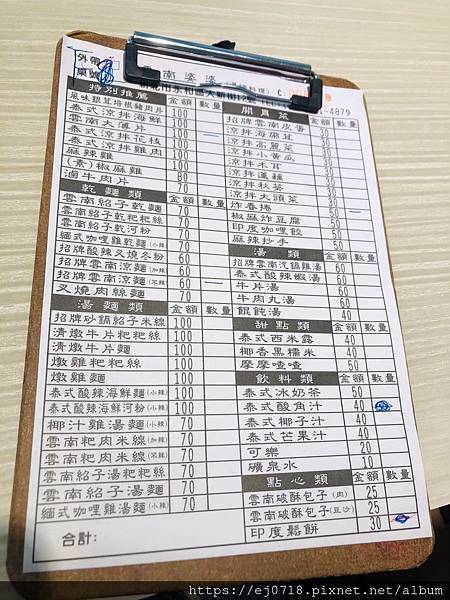 外帶
桌號
雲南婆婆
C:
-4879
特別推薦 金額 數量
風味銀芽培根豬肉片 100
泰式涼拌海鮮 100
雲南大薄片 100
泰式涼拌花枝 100
泰式涼拌雞肉 100
麻辣雞 100
(素)椒麻雞 100
滷牛肉片 80
乾麵類 金額 數量
雲南紹子乾麵 70
雲南紹子乾粑粑絲 70
雲南紹子乾河粉 70
緬式咖哩雞乾麵(小辣) 70
招牌酸辣叉燒冬粉 60
招牌雲南涼麵(加辣) 60
招牌雲南涼麵(不辣) 60
叉燒肉絲麵 70
湯麵類 金額 數量
招牌砂鍋紹子米線 100
清燉牛片粑粑絲 100
清燉牛片麵 100
燉雞粑粑絲 100
燉雞麵 100
泰式酸辣海鮮麵(小辣) 100
泰式酸辣海鮮河粉(小辣) 100
椰汁雞湯麵(小辣) 70
雲南粑肉米線(加辣) 70
雲南粑肉米線(不辣) 70
雲南紹子湯粑粑絲 70
雲南紹子湯麵 70
緬式咖哩雞湯麵(小辣) 70
合計:
開胃菜 金額 數量
招牌雲南皮蛋
涼拌海蒂茸
涼拌高麗菜
涼拌小黃瓜
涼拌木耳
涼拌蓮藕
涼拌秋葵
涼拌大頭菜
炸春捲
椒麻炸豆腐 50
印度咖哩餃 50
麻辣抄手 50
湯類 金額 數量
招牌雲南汽鍋雞湯
泰式酸辣蝦湯
牛片湯
牛肉丸湯
餛飩湯 40
甜點類 金額 數量
泰式西米露 40
椰香黑糯米 40
摩摩喳喳 50
飲料類 金額 數量
泰式冰奶茶 50
泰式酸角汁 40
泰式椰子汁 40
泰式芒果汁 40
可樂 20
礦泉水 10
點心類 金額 數量
雲南破酥包子(肉) 25
雲南破酥包子(豆沙) 25
印度鬆餅 30
https://ej0718.pixnet.net/album